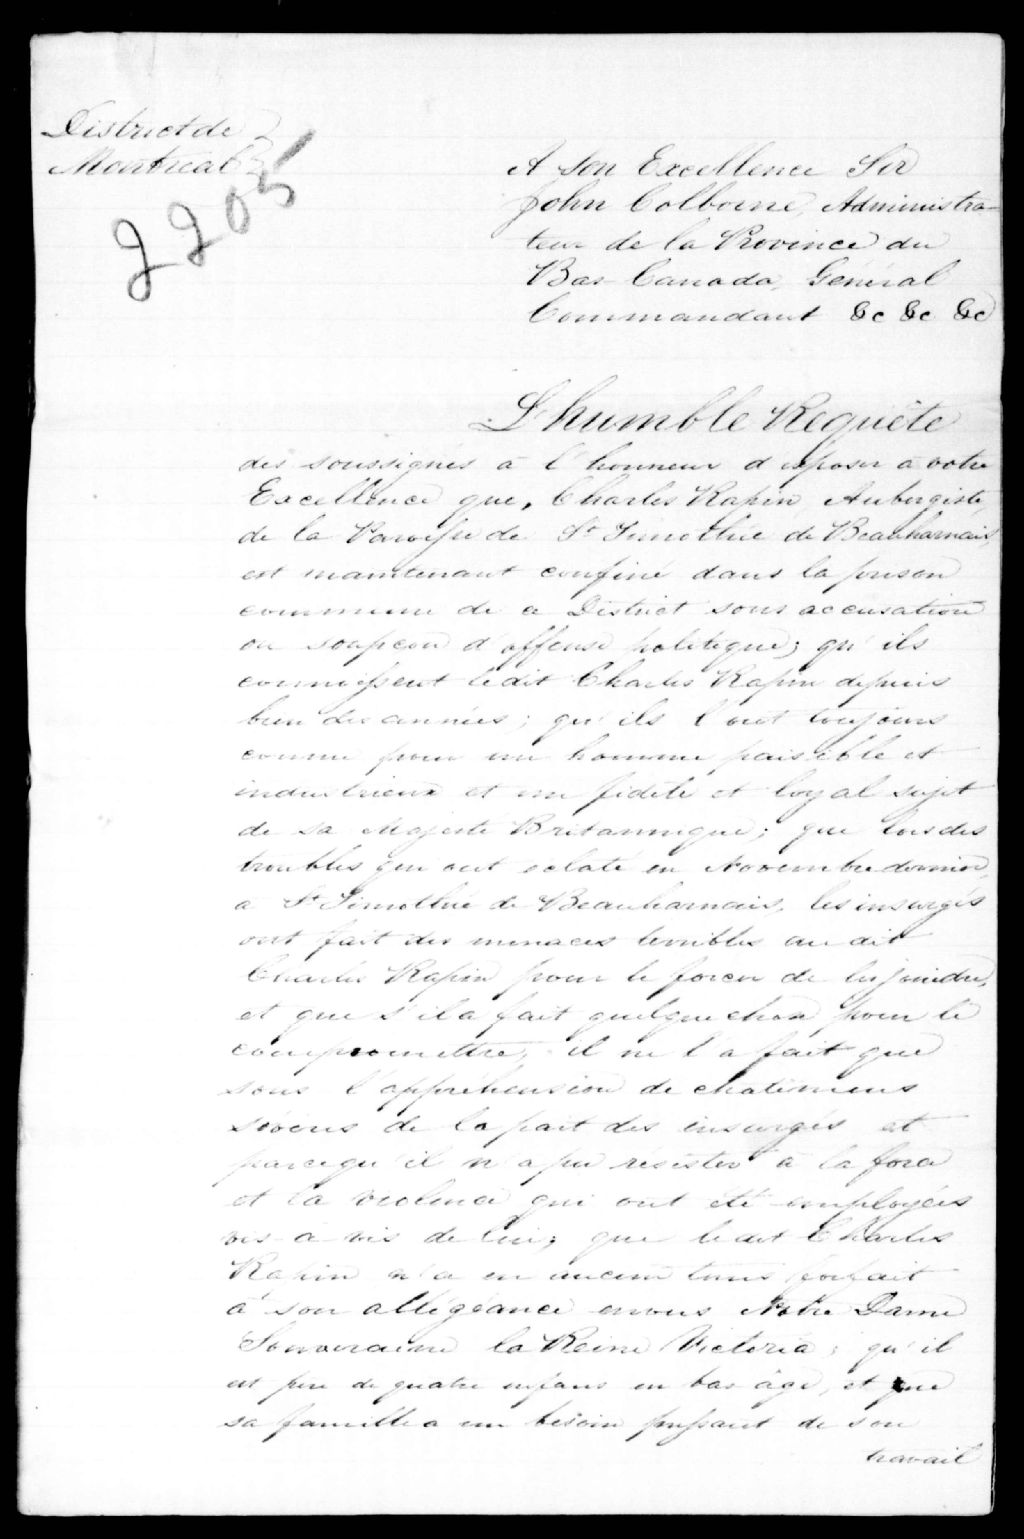 District de
Montréal
2205
A Son Excellence Sir
John Colborne, Administra-
teur de la Province du
Bas-Canada, Général
Commandant &c &c &c
L'humble Requête
des soussignés à l'honneur d'exposer à votre
Excellence que, Charles Rapin, Aubergiste,
de la Paroisse de St Timothée de Beauharnais,
est maintenant confiné dans la prison
commune de ce District sous accusation
ou soupçon d'offense politique; qu'ils
connoissent ledit Charles Rapin depuis
bien des années; qu'ils l'ont toujours
connu pour un homme paisible et
industrieux et un fidèle et loyal sujet
de sa Majesté Britannique; que lors des
troubles qui ont éclaté en Novembre dernier,
a St Timothée de Beauharnais, les insurgés
ont fait des menaces terribles au dit
Charles Rapin pour le forcer de les joindre,
et que s'il a fait quelque chose pour le
compromettre, il ne l'a fait que
sous l'appréhension de chatimens
sévères de la part des insurgés et
parcequ'il n'a pu résister à la force
et la violence qui ont été employées
vis-à-vis de lui; que ledit Charles
Rapin n'a en aucun tems forfait
à son allégéance envers Notre Dame
Souveraine la Reine Victoria; qu'il
est père de quatre enfans en bas âge, et que
sa famille a un besoin pressant de son
travail